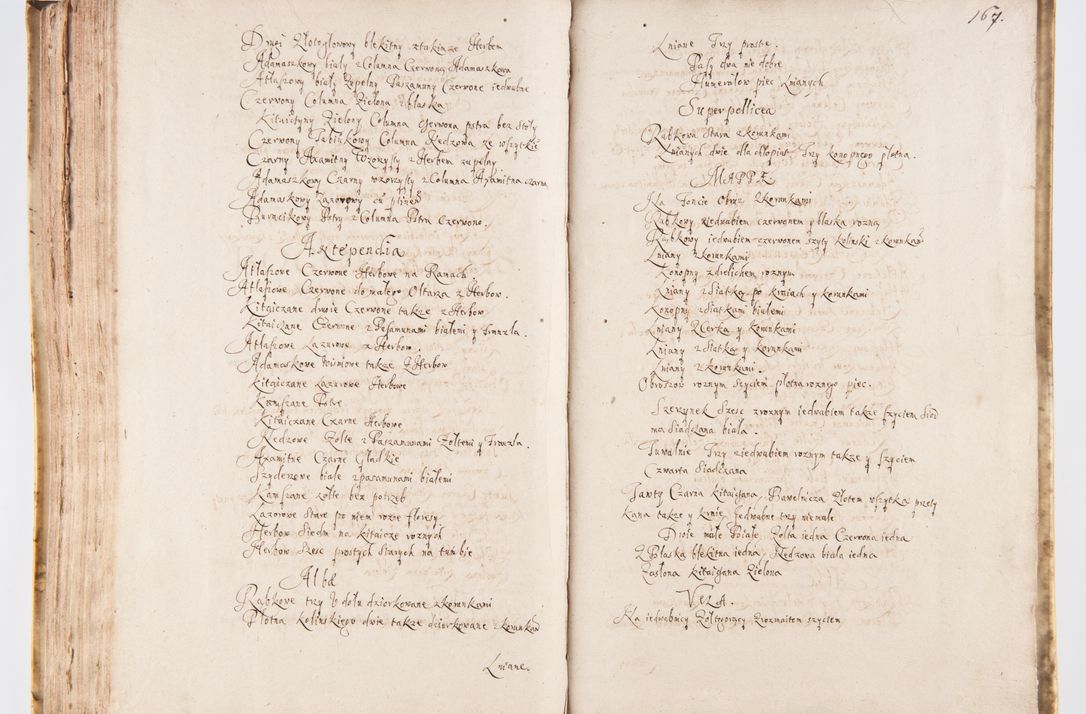 Drugi Złotogłowowy błękitny z takimze Herbem
Adamaszkowy biały z Columna Czerwoną Adamaszkową
Atłasowy biały zupełny Passamany Czerwone iedwabne
Czerwony Columna Zielona z blaska
Kitaiczyny Zielony Columna Czerwona pstra bez Stuły
Czerwony Tabinkowy Columna Nedzowa ze wszytkie
Czarny Axamitny Wzorzysty z Herbem zupełny
Adamaszkowy Czarny wzorzysty z Columna Axamitna czarna
Adamaszkowy Lazorowy
Burnatkowy Pstry z Columna Pstra Czerwono.
Antependia
Atłasowe Czerwone Herbowe na Ramach.
Atłasowe Czerwone do małego Ołtarza z Herbow.
Kitaiczane dwoie Czerwone takze z Herbow
Kitaiczane Czerwone z Passamanami białemi y Franzla.
Atłasowe Lazurowe z Herbow.
Adamaskowe Wisniowe takze z Herbow
Kitaiczane Lazurowe Herbowe
Kamszane Pstre
Kitaiczane Czarne Herbowe
Nedzowe Zołte z Passamanami Zołtemi y Franzla.
Axamitne Czarne Gladkie
Szydezowe białe z passamanami białemi
Kamszane zołte bez potrzeb
Lazorowe Stare po niem rozne floresy
Herbow Siedm na kitaicze roznych
Herbow Szesc prostych Starych na tumbie
Albæ
Rąbkowe trzy v dołu dziorkowane z koronkami
Płotna kolinskiego dwie takze dziorkowane z koronkami
Lniane.
167.
Lniane Trzy proste.
Pasy dwa nie dobre
Humerałow piec Lnianych
Superpellicea
Rąbkowa Stara z koronkami
Lnianych dwie dla chłopiąt Trzy konopnego płotna.
MAPPÆ
Na Foncie Obrus z koronkami
Rąbkowy z iedwabiem czerwonem z blaska rozną
Rąbkowy iedwabiem czerwonem szyty kolinski z koronkami
Lniany z koronkami
Konopny z dielichem roznym
Lniany z Siatką po kraiach y koronkami
Konopny z Siatkami białemi
Lniany z Czerka y koronkami
Lniany z Siatką y koronkami
Lniany z koronkami.
Obrusow roznym szyciem płotna roznego piec.
Szerzynek Szesc z roznym iedwabiem takze szyciem Siod
ma Siadczana biała.
Tuwalnie Trzy z iedwabiem roznym takze y szyciem
Czwarta Siadczana
Tawty Czarna kitaiczana Bawelnicza Złotem wszytka przety
kana takze y krnie iedwabne trzy niemałe
Dwoie małe Białe Zołta iedna Czerwona iedna
Z Płaska błekitna iedna Nedzowa biała iedna
Zasłona kitaiczana Zielona
VELA.
Na iedwabnicy Zołtogorący z rozmaitem szyciem